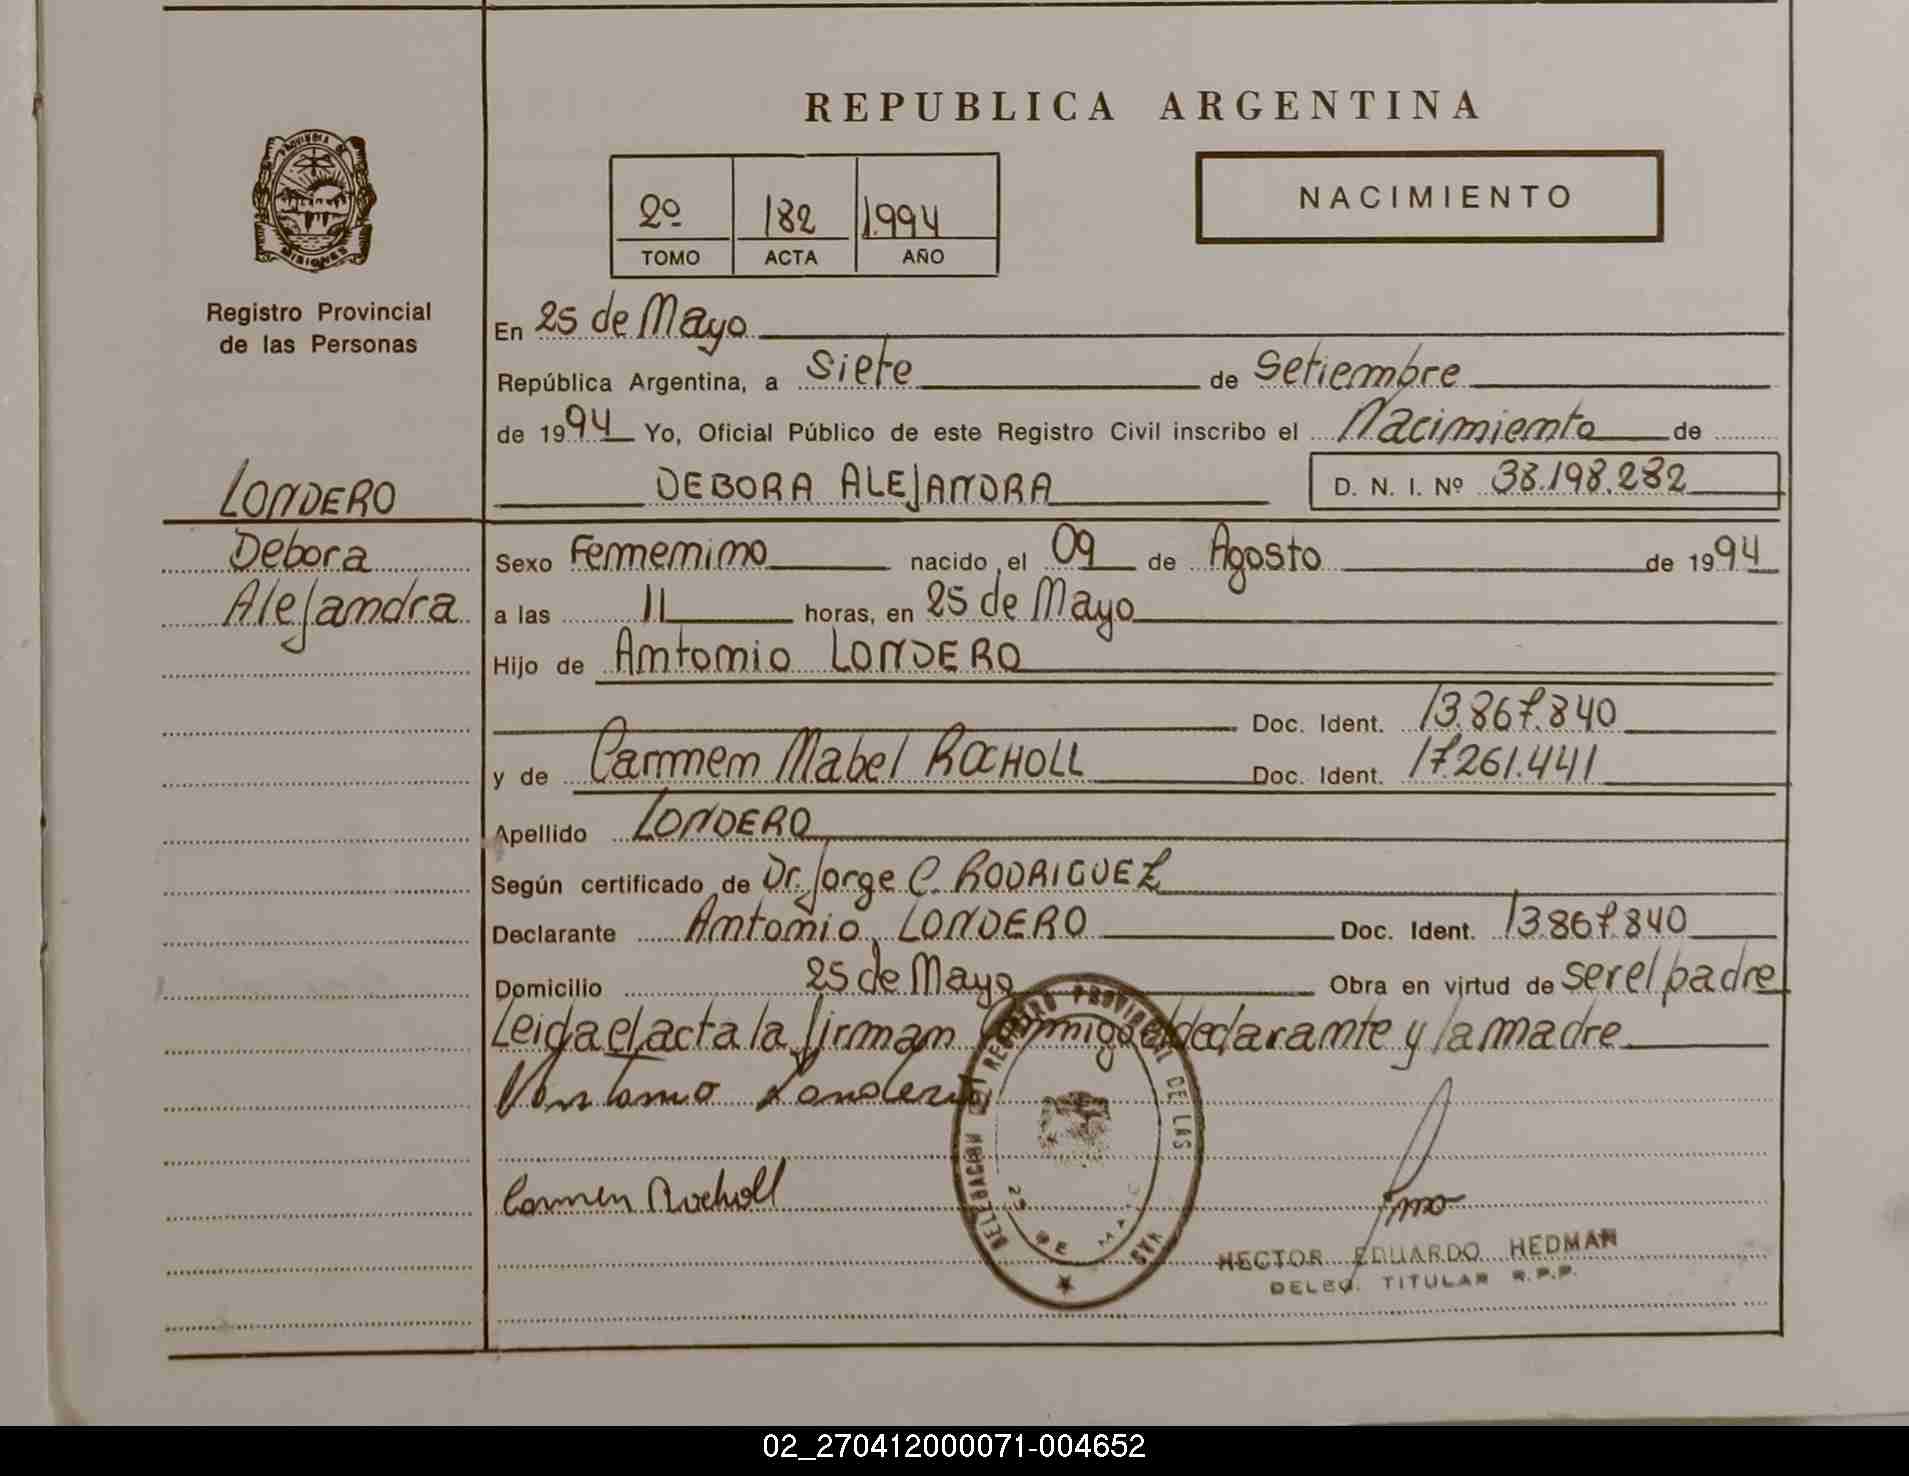 REPUBLICA ARGENTINA
PROVINCIA DE
MISIONES
2º 182 1.994
TOMO ACTA AÑO
NACIMIENTO
Registro Provincial
de las Personas
En 25 de Mayo
República Argentina, a siete de Setiembre
de 1994 Yo, Oficial Público de este Registro Civil inscribo el Nacimiento de
LONDERO
DEBORA ALEJANDRA D. N. I. Nº 38.198.282
Debora
Alejandra
Sexo Femenino nacido el 09 de Agosto de 1994
a las 11 horas, en 25 de Mayo
Hijo de Antonio LONDERO
Doc. Ident. 13.867.840
y de Carmen Mabel ROCHOLL Doc. Ident. 17.261.441
Apellido LONDERO
Según certificado de Dr. Jorge C. RODRIGUEZ
Declarante Antonio LONDERO Doc. Ident. 13.867.840
Domicilio 25 de Mayo Obra en virtud de ser el padre
Leida el acta la firman conmigo el declarante y la madre
Antonio Londero
Carmen Rocholl
DELEGACION DEL REGISTRO PROVINCIAL DE LAS
25 DE MAYO
HECTOR EDUARDO HEDMAN
DELEG. TITULAR R.P.P.
02_270412000071-004652